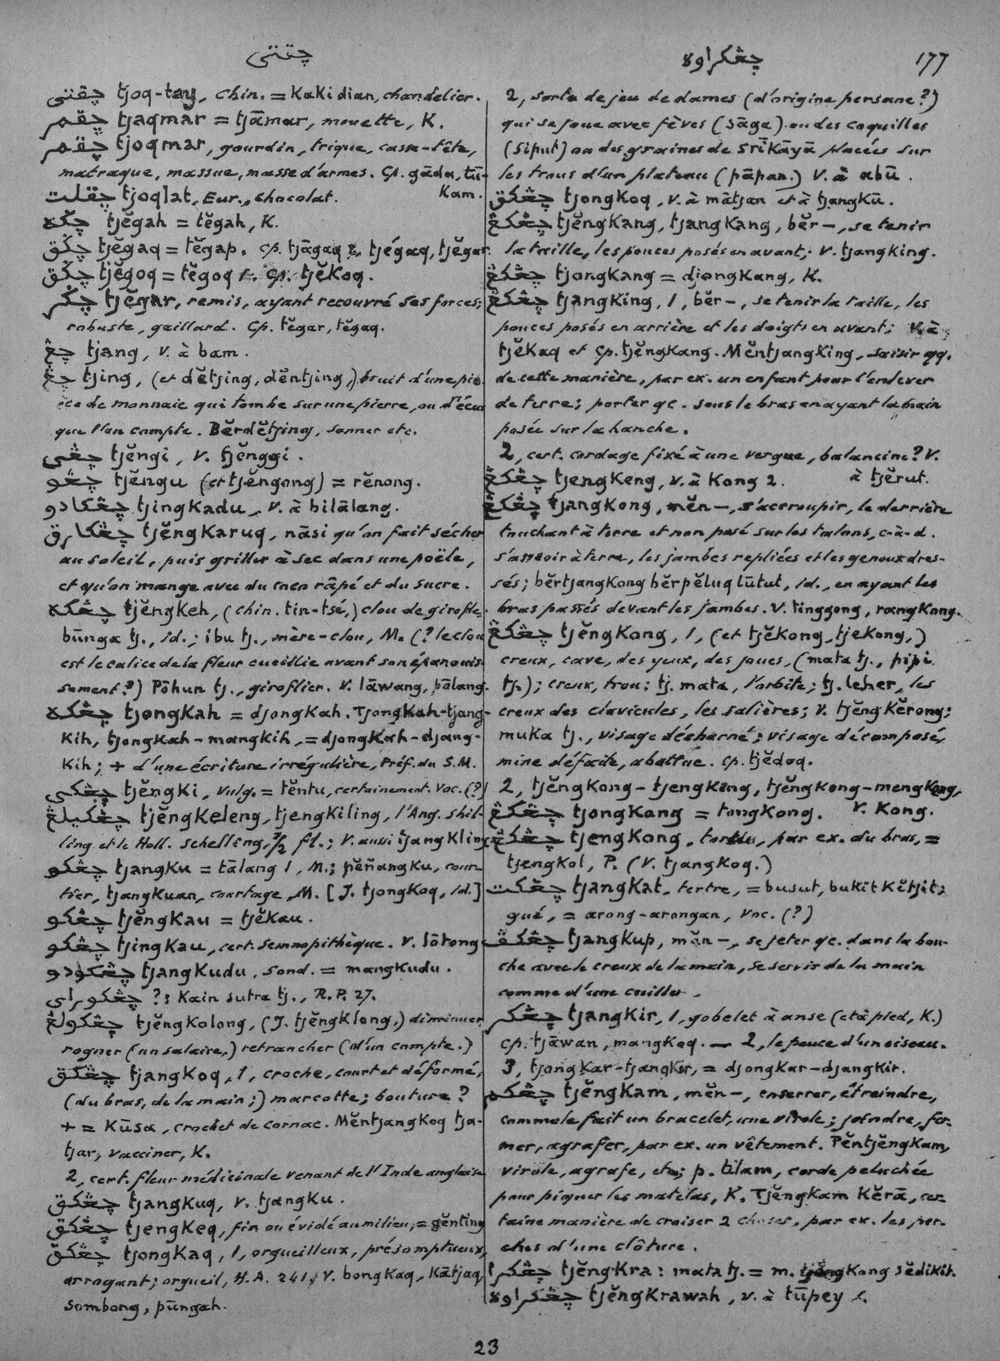 چقتى
چڠكراوه
177
چقتى tjoq-tay, chin. = Kaki dian, chandelier.
چقمر tjaqmar = tjāmar, mouette, K.
چقمر tjoqmar, gourdin, trique, casse-tête,
matraque, massue, masse d'armes. Cp. gāda, tū-
Kam.
چقلت tjoqlat, Eur., chocolat.
چݢه tjĕgah = tĕgah, K.
چݢق tjĕgaq = tĕgap. cp. tjāgaq &, tjégaq, tjĕgar.
چݢق tjĕgoq = tĕgoq. Cp. tjĕkoq.
چݢر tjĕgar, remis, ayant recouvré ses forces;
robuste, gaillard. Cp. tĕgar, tĕgaq.
چڠ tjang, v. à bam.
چڠ tjing, (et dĕtjing, dĕntjing,) bruit d'une piè-
ce de monnaie qui tombe sur une pierre, ou d'écus
que l'on compte. Bĕrdĕtjing, sonner etc.
چڠى tjĕngi, v. tjĕnggi.
چڠو tjĕngu (et tjĕngong) = rĕnong.
چڠكادو tjingKadu, v. à bilālang.
چڠكارق tjĕngKaruq, nāsi qu'on fait sécher
au soleil, puis griller à sec dans une poële,
et qu'on mange avec du coco râpé et du sucre.
چڠكه tjĕngKeh, (chin. tin-tsé,) clou de girofle.
būnga tj., id.; ibu tj., mère-clou, M. (? le clou
est le calice de la fleur cueillie avant son épanouis-
sement?) Pōhun tj., giroflier. V. lāwang, pālang.
چڠكه tjongKah = djongKah. TjongKah-tjang-
Kih, tjongKah-mangKih, = djongKah-djang-
Kih; + d'une écriture irrégulière, Préf. du S.M.
چڠكى tjĕngKi, vulg. = tĕntu, certainement. Voc. (?)
چڠكيلڠ tjĕngKeleng, tjengKiling, l'Ang. shil-
ling et le Holl. schelling, ½ fl.; V. aussi tjangKling.
چڠكو tjangKu = tālang 1, M.; pĕñangKu, cour-
tier, tjangKuan, courtage, M. [J. tjongKoq, id.]
چڠكو tjĕngKau = tjĕKau.
چڠكو tjingKau, cert. semnopithèque. V. lōtong
چڠكودو tjangKudu, sond. = mangKudu.
چڠكوراى ?: Kain sutra tj., R.P. 27.
چڠكولڠ tjĕngKolong, (J. tjĕngKlong,) diminuer
rogner (un salaire,) retrancher (d'un compte.)
چڠكق tjangKoq, 1, croche, court et déformé,
(du bras, de la main;) marcotte; bouture?
+ = Kūsa, crochet de cornac. MĕntjangKoq tja-
tjar, vacciner, K.
2, cert. fleur médicinale venant de l'Inde anglaise
چڠكق tjangKuq, v. tjangKu.
چڠكق tjengKeq, fin ou évidé au milieu, = gĕnting
چڠكق tjongKaq, 1, orgueilleux, présomptueux,
arrogant; orgueil, H.A. 241, v. bongKaq, Kātjaq,
sombong, pūngah.
2, sorte de jeu de dames (d'origine persane?)
qui se joue avec fèves (sāga) ou des coquilles
(siput) ou des graines de sriKāyā placées sur
les trous d'un plateau (pāpan.) V. à abū.
چڠكق tjongKoq, v. à mātjan et à tjangKū.
چڠكڠ tjĕngKang, tjangKang, bĕr—, se tenir
la taille, les pouces posés en avant; v. tjangKing.
چڠكڠ tjongKang = djongKang, K.
چڠكڠ tjangKing, 1, bĕr—, se tenir la taille, les
pouces posés en arrière et les doigts en avant; v. à
tjĕKaq et cp. tjĕngKang. MĕntjangKing, saisir qq.
de cette manière, par ex. un enfant pour l'enlever
de terre; porter qc. sous le bras en ayant la main
posée sur la hanche.
2, cert. cordage fixé à une vergue, balancine? V.
à tjĕrut.
چڠكڠ tjengKeng, v. à Kong 2.
چڠكڠ tjangKong, mĕn—, s'accroupir, le derrière
touchant à terre et non posé sur les talons, c.-à-d.
s'asseoir à terre, les jambes repliées et les genoux dres-
sés; bĕrtjangKong bĕrpĕluq lūtut, id., en ayant les
bras passés devant les jambes. V. tinggong, rangKong.
چڠكڠ tjĕngKong, 1, (et tjĕKong, tjeKong,)
creux, cave, des yeux, des joues, (mata tj., pipi
tj.); creux, trou: tj. mata, l'orbite; tj. leher, les
creux des clavicules, les salières; v. tjĕngKĕrong;
muKa tj., visage décharné; visage décomposé,
mine défaite, abattue. Cp. tjĕdoq.
2, tjĕngKong-tjengKang, tjĕngKong-mengKang,
V. Kong.
چڠكڠ tjongKong = tongKong.
چڠكڠ tjengKong, tordu, par ex. du bras, =
tjengKol, P. (V. tjangKoq.)
چڠكت tjangKat, tertre, = busut, buKit Kĕtjit;
gué, = arong-arongan, Voc. (?)
چڠكڤ tjangKup, mĕn—, se jeter qc. dans la bou-
che avec le creux de la main, se servir de la main
comme d'une cuiller.
چڠكر tjangKir, 1, gobelet à anse (et à pied, K.)
cp. tjāwan, mangKoq. — 2, le pouce d'un oiseau.
3, tjongKar-tjangKir, = djongKar-djangKir.
چڠكم tjĕngKam, mĕn—, enserrer, étreindre,
comme le fait un bracelet, une virole; joindre, fer-
mer, agrafer, par ex. un vêtement. PĕntjĕngKam,
virole, agrafe, etc; p. tilam, corde peluchée
pour piquer les matelas, K. TjĕngKam Kĕrā, cer-
taine manière de croiser 2 choses, par ex. les per-
ches d'une clôture.
چڠكرا tjĕngKra: mata tj. = m. tjĕngKong sĕdiKit.
چڠكراوه tjĕngKrawah, v. à tūpey &.
23